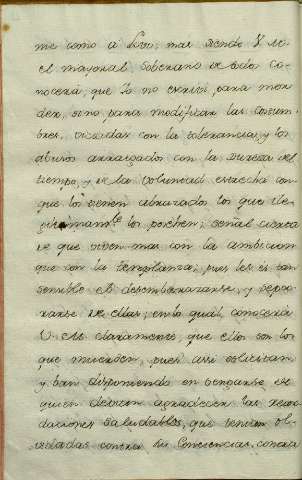 me como á Lobo; mas siendo V. M.
el mayoral Soberano de todo co-
nocerá, que Yo no escrivi para mor-
der, sino para modificar las costum-
bres, viciadas con la tolerancia, y los
abusos arraigados con la dureza del
tiempo, y de la voluntad estrecha con
que los tienen abrazados los que ile-
gitimamte. los poséhen; señal cierta
de que viven mas con la ambicion
que con la templanza; pues les es tan
sensible el desembarazarse, y sepa-
rarse de ellas; en lo qual, conocerá
V. M. claramente, que ellos son los
que muerden, pues assi solicitan,
y ban disponiendo en vengarse de
quien devieran agradecer las recor-
daciones saludables, que tenian ol-
vidadas contra su Conciencia, contra